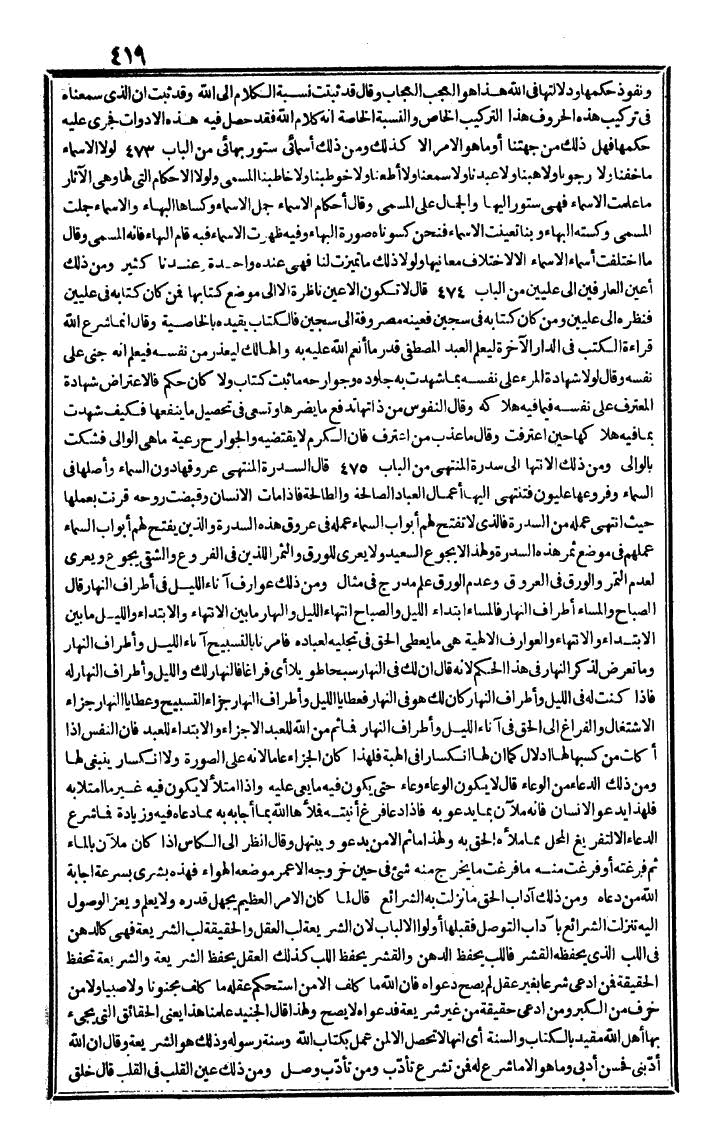 ٤١٩
ونفوذ حكمها ودلالتها فى الله هذا هو العجب العجاب وقال قد ثبتت نسبة الكلام الى الله وقد ثبت ان الذى سمعناه
فى تركيب هذه الحروف هذا التركيب الخاص والنسبة الخاصة انه كلام الله فقد حصل فيه هذه الادوات فجرى عليه
حكمها فهل ذلك من جهتنا أو ما هو الامر الا كذلك ومن ذلك أسمائى ستور بهائى من الباب ٤٧٣ لولا الاسماء
ما خفنا ولا رجونا ولا هبنا ولا عبدنا ولا سمعنا ولا أطعنا ولا خوطبنا ولا خاطبنا المسمى ولولا الاحكام التى لها وهى الآثار
ما علمت الاسماء فهى ستور اليها والجمال على المسمى وقال أحكام الاسماء جمل الاسماء وكساها البهاء والاسماء جملت
المسمى وكسته البهاء وبنا تعينت الاسماء فنحن كسوناه صورة البهاء وفيه ظهرت الاسماء فبه قام البهاء فانه المسمى وقال
ما اختلفت أسماء الاسماء الا لاختلاف معانيها ولولا ذلك ما تميزت لنا فهى عنده واحدة وعندنا كثير ومن ذلك
أعين العارفين الى عليين من الباب ٤٧٤ قال لا تكون الاعين ناظرة الا الى موضع كتابها فمن كان كتابه فى عليين
فنظره الى عليين ومن كان كتابه فى سجين فعينه مصروفة الى سجين فالكتاب يقيده بالخاصية وقال انما شرع الله
قراءة الكتب فى الدار الآخرة ليعلم العبد المصطفى قدر ما أنعم الله عليه به والهالك ليعذر من نفسه فيعلم انه جنى على
نفسه وقال لولا شهادة المرء على نفسه بما شهدت به جلوده وجوارحه ما ثبت كتاب ولا كان حكم فالاعتراض شهادة
المعترف على نفسه فيما فيه هلاكه وقال النفوس من ذاتها تدفع ما يضرها وتسعى فى تحصيل ما ينفعها فكيف شهدت
بما فيه هلاكها حين اعترفت وقال ما عذب من اعترف فان الكرم لا يقتضيه والجوارح رعية ما هى الوالى فشكت
بالوالى ومن ذلك الانتها الى سدرة المنتهى من الباب ٤٧٥ قال السدرة المنتهى عروقها دون السماء وأصلها فى
السماء وفروعها عليون فتنتهى اليها أعمال العباد الصالحة والطالحة فاذا مات الانسان وقبضت روحه قرنت بعملها
حيث انتهى عمله من السدرة فالذى لا تفتح لهم أبواب السماء عمله فى عروق هذه السدرة والذين يفتح لهم أبواب السماء
عملهم فى موضع ثمر هذه السدرة ولهذا لا يجوع السعيد ولا يعرى للورق والثمر اللذين فى الفروع والشقى يجوع ويعرى
لعدم الثمر والورق فى العروق وعدم الورق علم مدرج فى مثال ومن ذلك عوارف آناء الليل فى أطراف النهار قال
الصباح والمساء أطراف النهار فالمساء ابتداء الليل والصباح انتهاء الليل والنهار ما بين الانتهاء والابتداء والليل ما بين
الابتداء والانتهاء والعوارف الالهية هى ما يعطى الحق فى تجليه لعباده فامرنا بالتسبيح آناء الليل وأطراف النهار
وما تعرض لذكر النهار فى هذا الحكم لانه قال ان لك فى النهار سبحا طويلا أى فراغا فالنهار لك والليل وأطراف النهار له
فاذا كنت له فى الليل وأطراف النهار كان لك هو فى النهار فعطايا الليل وأطراف النهار جزاء التسبيح وعطايا النهار جزاء
الاشتغال والفراغ الى الحق فى آناء الليل وأطراف النهار فماثم من الله للعبد الا جزاء والابتداء للعبد فان النفس اذا
أكات من كسبها لها ادلال كما ان لها انكسارا فى الهبة فلهذا كان الجزاء عاما لانه على الصورة ولا انكسار ينبغى لها
ومن ذلك الدعاء من الوعاء قال لا يكون الوعاء وعاء حتى يكون فيه ما يعى عليه واذا امتلأ لا يكون فيه غير ما امتلا به
فلهذا يدعو الانسان فانه ملآن بما يدعو به فاذا دعا فرغ أنيته فلأها الله بما أجابه به مما دعاه فيه وزيادة فما شرع
الدعاء الا لتفريغ المحل مما ملأه الحق به ولهذا ماثم الا من يدعو ويبتهل وقال انظر الى الكاس اذا كان ملآن بالماء
ثم فرغته أو فرغت منه ما فرغت ما يخرج منه شئ فى حين خروجه الا عمر موضعه الهواء فهذه بشرى بسرعة اجابة
الله من دعاه ومن ذلك آداب الحق ما نزلت به الشرائع قال لما كان الامر العظيم يجهل قدره ولا يعلم ويعز الوصول
اليه تنزلت الشرائع با داب التوصل فقبلها أولوا الالباب لان الشريعة لب العقل والحقيقة لب الشريعة فهى كالدهن
فى اللب الذى يحفظه القشر فاللب يحفظ الدهن والقشر يحفظ اللب كذلك العقل يحفظ الشريعة والشريعة تحفظ
الحقيقة فمن ادعى شرعا بغير عقل لم يصح دعواه فان الله ما كلف الا من استحكم عقله ما كلف مجنونا ولا صبيا ولا من
خرف من الكبر ومن ادعى حقيقة من غير شريعة فدعواه لا يصح ولهذا قال الجنيد علمنا هذا يعنى الحقائق التى يجىء
بها أهل الله مقيد بالكتاب والسنة أى انها لا تحصل الا لمن عمل بكتاب الله وسنة رسوله وذلك هو الشريعة وقال ان الله
أدبنى فحسن أدبى وما هو الا ما شرع له فمن تشرع تأدب ومن تأدب وصل ومن ذلك عين القلب فى القلب قال خلق